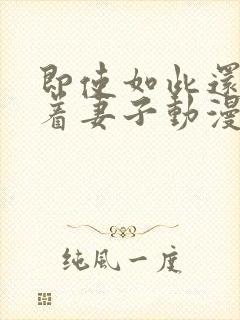 即使如此還
著妻子動漫
純風一度